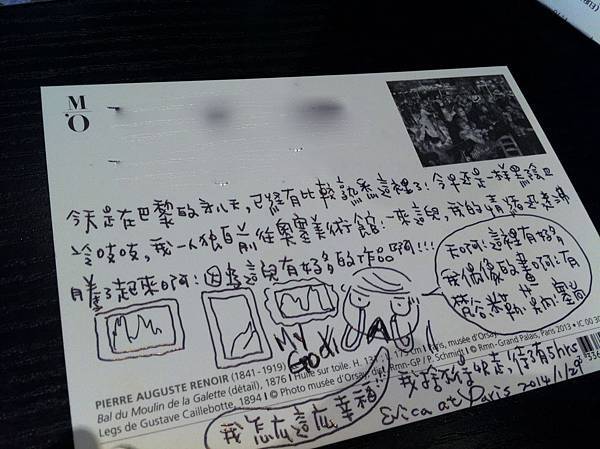 M'O
今天是在巴黎的第八天,已經有比較熟悉這裡了!今早還是一樣黑陰
冷吱吱,我一人獨自前往奧塞美術館:一來這兒,我的情緒又
騰了起來啊!因為這兒有好多的作品啊!!!
天啊!這裡有好多
我偶像的畫啊!有
梵谷 米勒 莫內 塞尚
MY
GOD!
PIERRE AUGUSTE RENOIR (1841-1919)
Bal du Moulin de la Galette (détail), 1876 I Huile sur toile. H. 131 175 cm I Paris, musée d'Orsay
Legs de Gustave Caillebotte, 1894 I © Photo musée d'Orsay / Rmn-GP / P. Schmidt I © Rmn-Grand Palais, Paris 2013 • IC 00 30
我捨不得快走,停留5hrs
我怎么這么幸福!!
Erica at Paris 2014/1/29